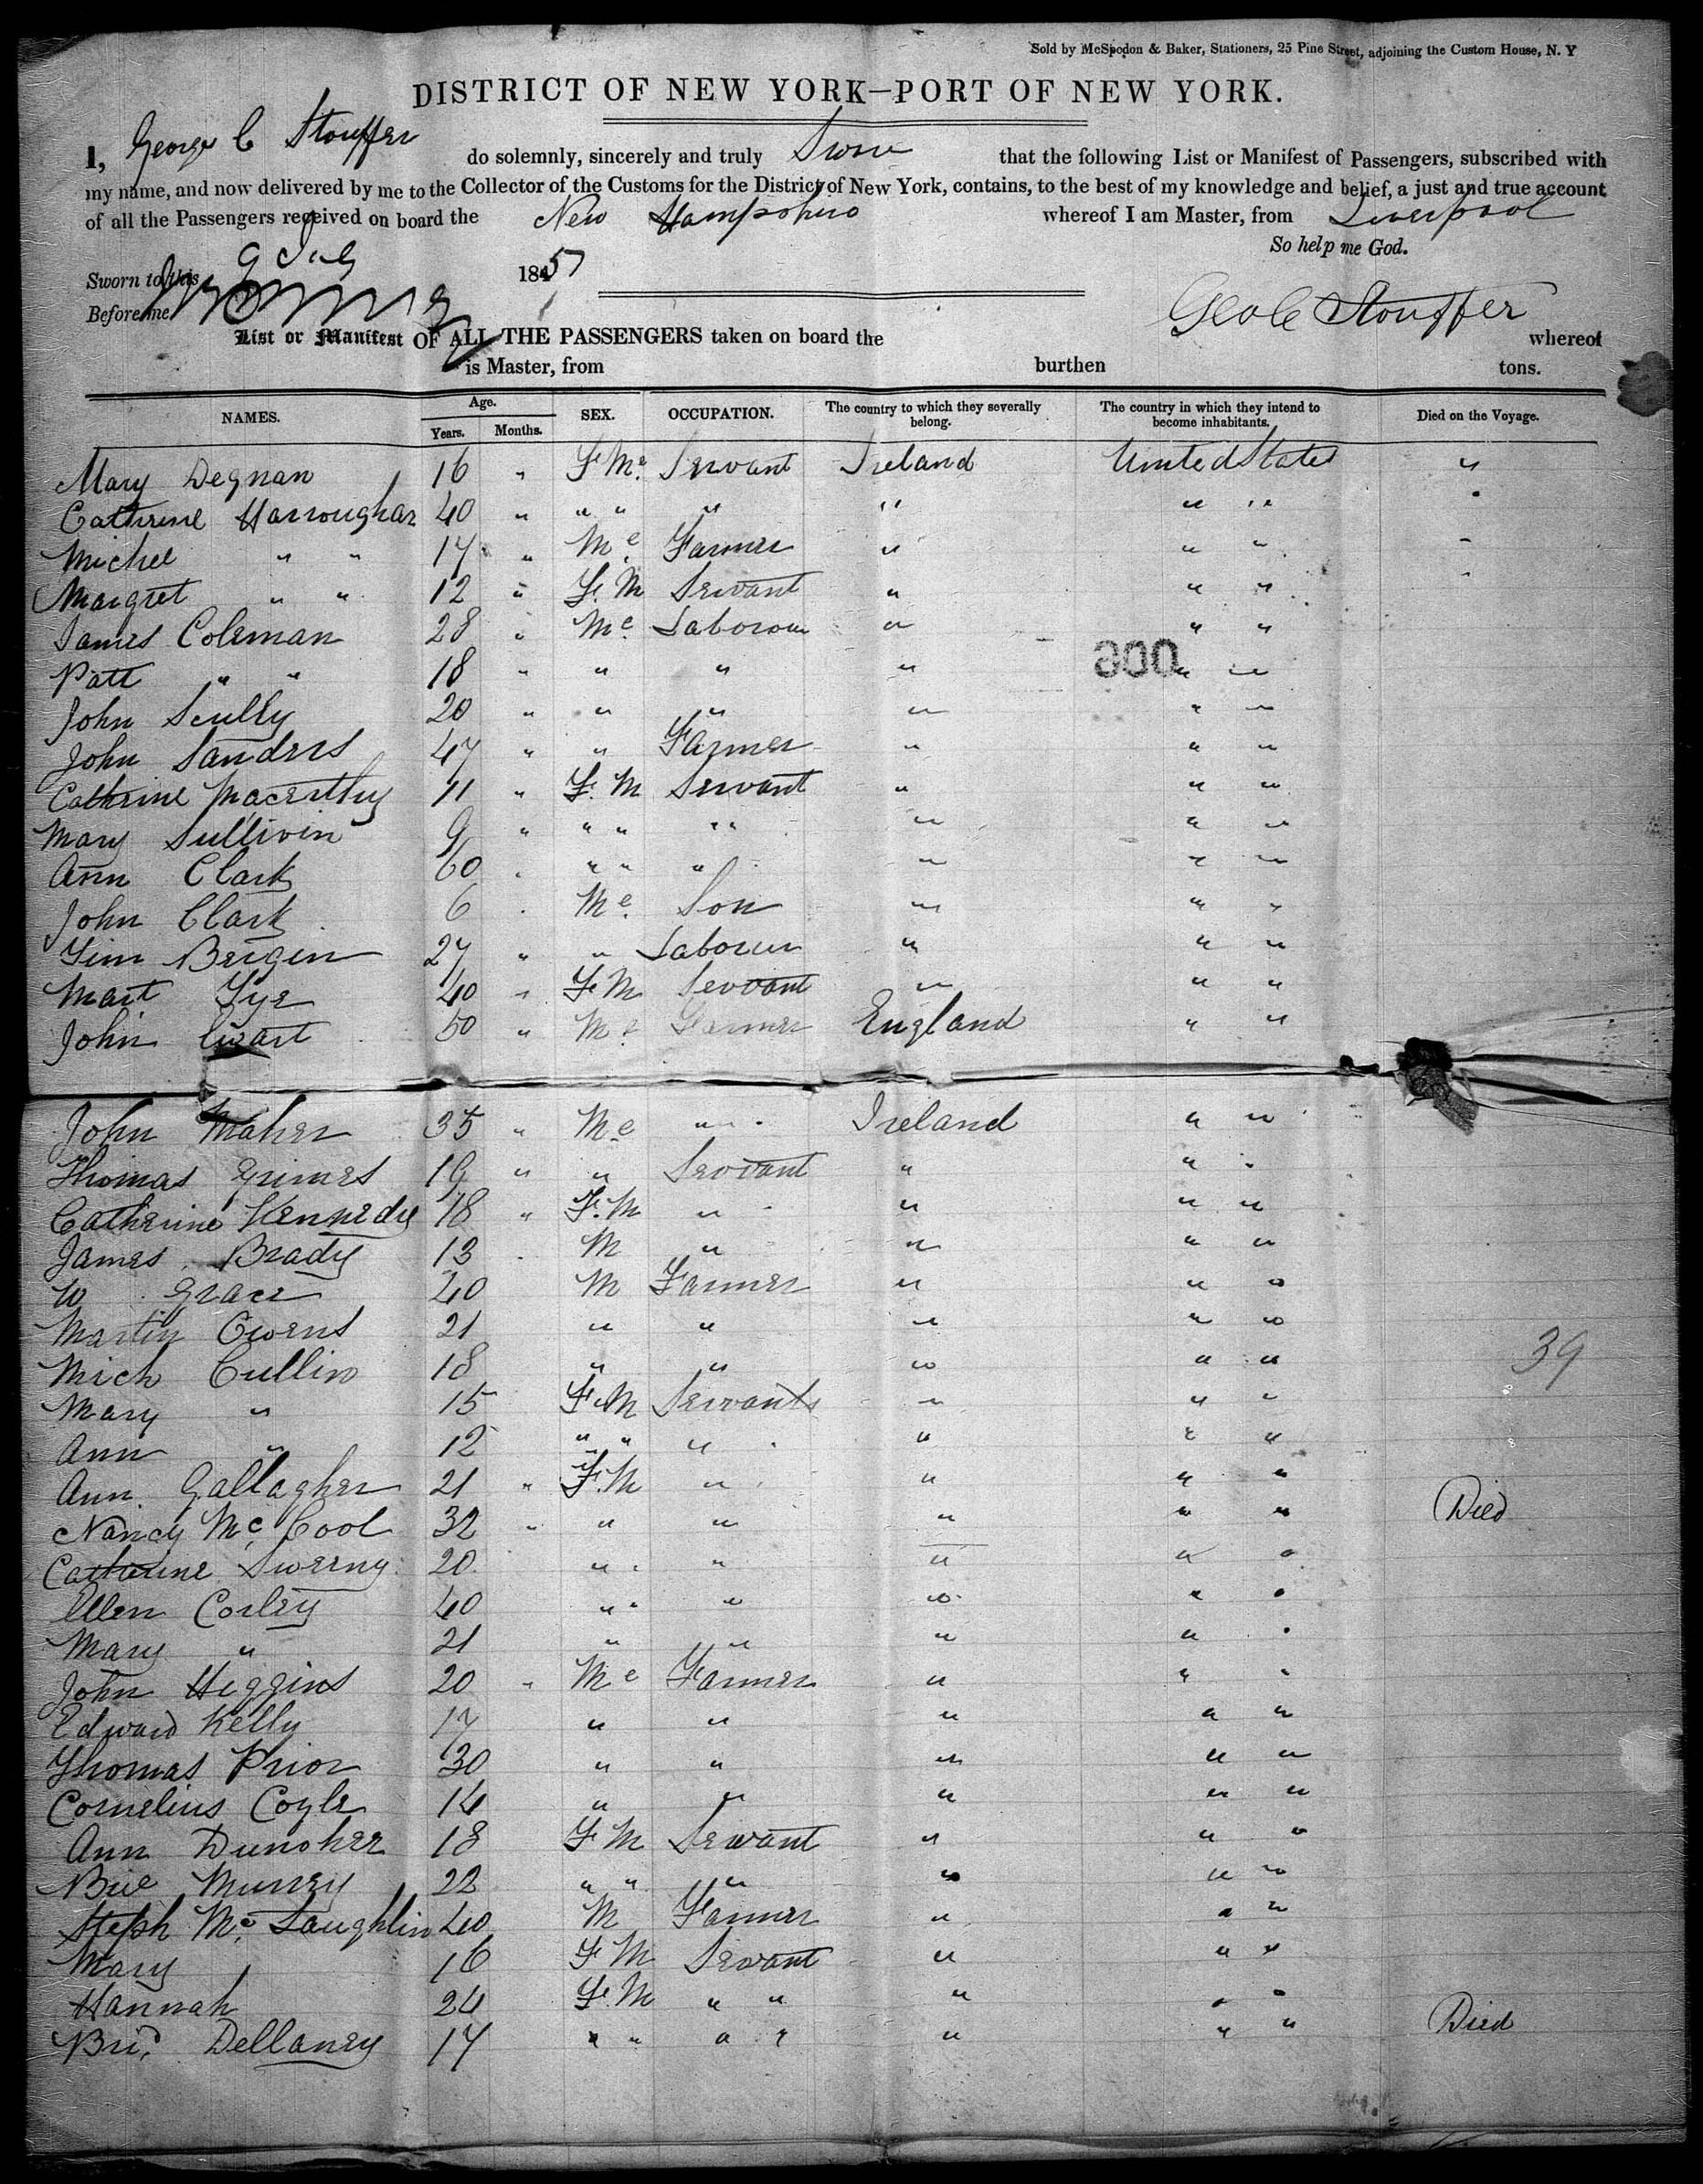 Sold by McSpedon & Baker, Stationers, 25 Pine Street, adjoining the Custom House, N. Y
DISTRICT OF NEW YORK—PORT OF NEW YORK.
I, George C Stouffer do solemnly, sincerely and truly Swear that the following List or Manifest of Passengers, subscribed with
my name, and now delivered by me to the Collector of the Customs for the District of New York, contains, to the best of my knowledge and belief, a just and true account
of all the Passengers received on board the New Hampshire whereof I am Master, from Liverpool
So help me God.
Sworn to this 9 184
Before me Geo C Stouffer
List or Manifest OF ALL THE PASSENGERS taken on board the whereof
is Master, from burthen tons.
NAMES. Age. Years. Months. SEX. OCCUPATION. The country to which they severally belong. The country in which they intend to become inhabitants. Died on the Voyage.
Mary Degnan 16 " F Me. Servant Ireland United States "
Cathrine Harroughar 40 " " " " " " "
Michel " " 17 " Me. Farmer " " "
Margret " " 12 " F. M Servant " " "
James Coleman 28 " Me. Laborour " " "
Patt " " 18 " " " " " "
900
John Scully 20 " " " " " "
John Sanders 47 " " Farmer " " "
Cathrine Macerthy 11 " F. M Servant " " "
Mary Sullivin 9 " " " " " " " "
Ann Clark 60 " " " " " " "
John Clark 6 " Me. Son " " "
Tim Bergin 27 " " Laborur " " "
Mart Tye 40 " F M Servant " " "
John Ewart 50 " Me Farmer England " "
John Maher 35 " Me " " Ireland " "
Thomas Grimes 19 " " Servant " " "
Catherine Kennedy 18 " F. M " " " "
James Brady 13 M " " " "
W Grace 20 M Farmer " " "
Martin Owens 21 " " " " "
Mich Cullin 18 " " " " "
39
Mary " 15 F M Servants " " "
Ann " 12 " " " " " "
Ann Gallagher 21 " F. M " " " "
Nancy Mc Cool 32 " " " " " " Died
Catherine Sweeny 20 " " " " "
Ellen Corley 40 " " " " " "
Mary " 21 " " " " "
John Higgins 20 " Me Farmer " " "
Edward Kelly 17 " " " " "
Thomas Prior 30 " " " " "
Cornelius Coyle 14 " " " " "
Ann Dunoher 18 F M Servant " " "
Bid Murrey 22 " " " " " "
Steph Mc Laughlin 40 M Farmer " " "
Mary 16 F M Servant " " "
Hannah 24 F. M " " " " "
Brid Dellaney 17 " " " " " " " Died